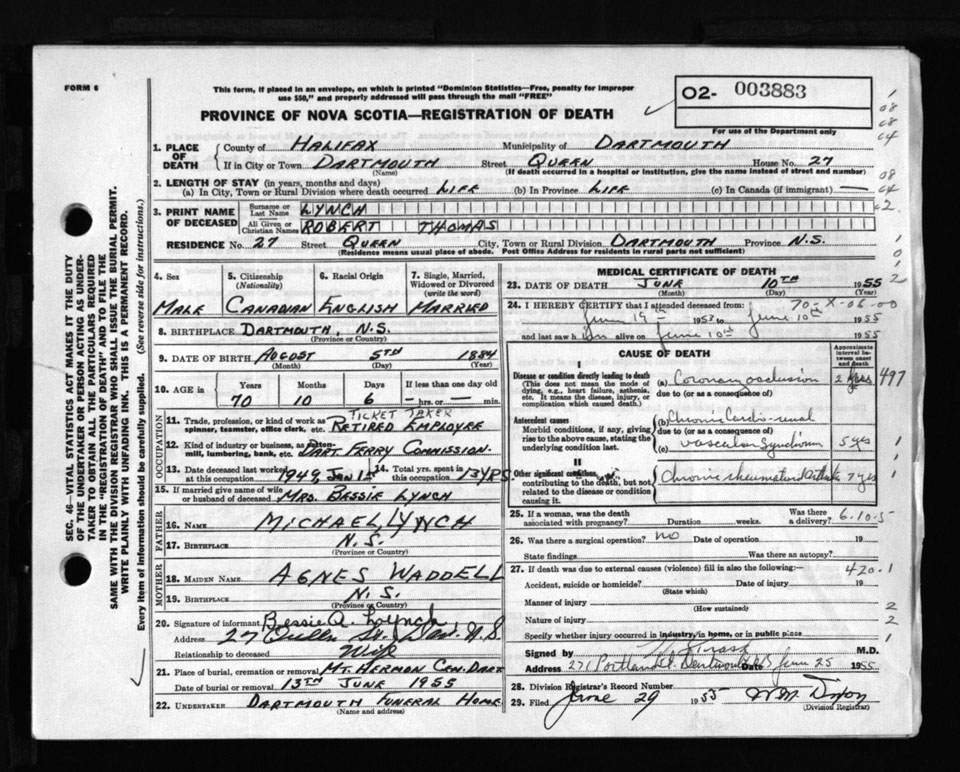 FORM 6
This form, if placed in an envelope, on which is printed "Dominion Statistics—Free, penalty for improper
use $50," and properly addressed will pass through the mail "FREE"
PROVINCE OF NOVA SCOTIA—REGISTRATION OF DEATH
O2- 003883
For use of the Department only
1. PLACE OF DEATH
County of HALIFAX Municipality of DARTMOUTH
If in City or Town DARTMOUTH Street QUEEN House No. 27
(Name) (If death occurred in a hospital or institution, give the name instead of street and number)
2. LENGTH OF STAY (in years, months and days)
(a) In City, Town or Rural Division where death occurred LIFE (b) In Province LIFE (c) In Canada (if immigrant) —
3. PRINT NAME OF DECEASED
Surname or Last Name LYNCH
All Given or Christian Names ROBERT THOMAS
RESIDENCE No. 27 Street QUEEN City, Town or Rural Division DARTMOUTH Province N.S.
(Residence means usual place of abode. Post Office Address for residents in rural parts not sufficient)
4. Sex 5. Citizenship (Nationality) 6. Racial Origin 7. Single, Married, Widowed or Divorced (write the word)
MALE CANADIAN ENGLISH MARRIED
8. BIRTHPLACE DARTMOUTH, N.S.
(Province or Country)
9. DATE OF BIRTH AUGUST 5TH 1884
(Month) (Day) (Year)
10. AGE in Years Months Days If less than one day old
70 10 6 — hrs. or — min.
OCCUPATION
TICKET TAKER
11. Trade, profession, or kind of work as spinner, teamster, office clerk, etc. RETIRED EMPLOYEE
12. Kind of industry or business, as cotton-mill, lumbering, bank, etc. DART. FERRY COMMISSION.
13. Date deceased last worked at this occupation 1949, JAN 1st 14. Total yrs. spent in this occupation 13 YRS.
15. If married give name of wife or husband of deceased MRS. BESSIE LYNCH
FATHER
16. NAME MICHAEL LYNCH
17. BIRTHPLACE N.S.
(Province or Country)
MOTHER
18. MAIDEN NAME AGNES WADDELL
19. BIRTHPLACE N.S.
(Province or Country)
20. Signature of informant Bessie A. Lynch
Address 27 Queen St. Dart. N.S.
Relationship to deceased Wife
21. Place of burial, cremation or removal MT. HERMON CEM. DART
Date of burial or removal 13TH JUNE 1955
22. UNDERTAKER DARTMOUTH FUNERAL HOME
(Name and address)
MEDICAL CERTIFICATE OF DEATH
23. DATE OF DEATH JUNE 10TH 1955
(Month) (Day)
24. I HEREBY CERTIFY that I attended deceased from: 70-X-06-00
June 19th 1953 to June 10th 1955
and last saw him alive on June 10th 1955
CAUSE OF DEATH
Approximate interval between onset and death
I
Disease or condition directly leading to death
(This does not mean the mode of dying, e.g., heart failure, asthenia, etc. It means the disease, injury, or complication which caused death.)
(a) Coronary occlusion 2
497
due to (or as a consequence of)
Antecedent causes
Morbid conditions, if any, giving rise to the above cause, stating the underlying condition last.
(b) Chronic Cardio-renal
due to (or as a consequence of)
(c) vascular Syndrom 5 yrs
II
Other significant conditions contributing to the death, but not related to the disease or condition causing it.
Chronic rheumatoid Arthritis 7 yrs
25. If a woman, was the death associated with pregnancy? Duration weeks. Was there a delivery? 6-10-5
26. Was there a surgical operation? NO Date of operation 19
State findings Was there an autopsy?
27. If death was due to external causes (violence) fill in also the following:— 420.1
Accident, suicide or homicide? Date of injury 19
(State which)
Manner of injury
(How sustained)
Nature of injury
Specify whether injury occurred in industry, in home, or in public place
Signed by Trask M.D.
Address 271 Portland St. Dartmouth Date June 25 1955
28. Division Registrar's Record Number
29. Filed June 29 1955 W.M. Dixon
(Division Registrar)
SEC. 46—VITAL STATISTICS ACT MAKES IT THE DUTY
OF THE UNDERTAKER OR PERSON ACTING AS UNDER-
TAKER TO OBTAIN ALL THE PARTICULARS REQUIRED
IN THE "REGISTRATION OF DEATH" AND TO FILE THE
SAME WITH THE DIVISION REGISTRAR WHO SHALL ISSUE THE BURIAL PERMIT.
WRITE PLAINLY WITH UNFADING INK. THIS IS A PERMANENT RECORD.
Every item of information should be carefully supplied. (See reverse side for instructions.)